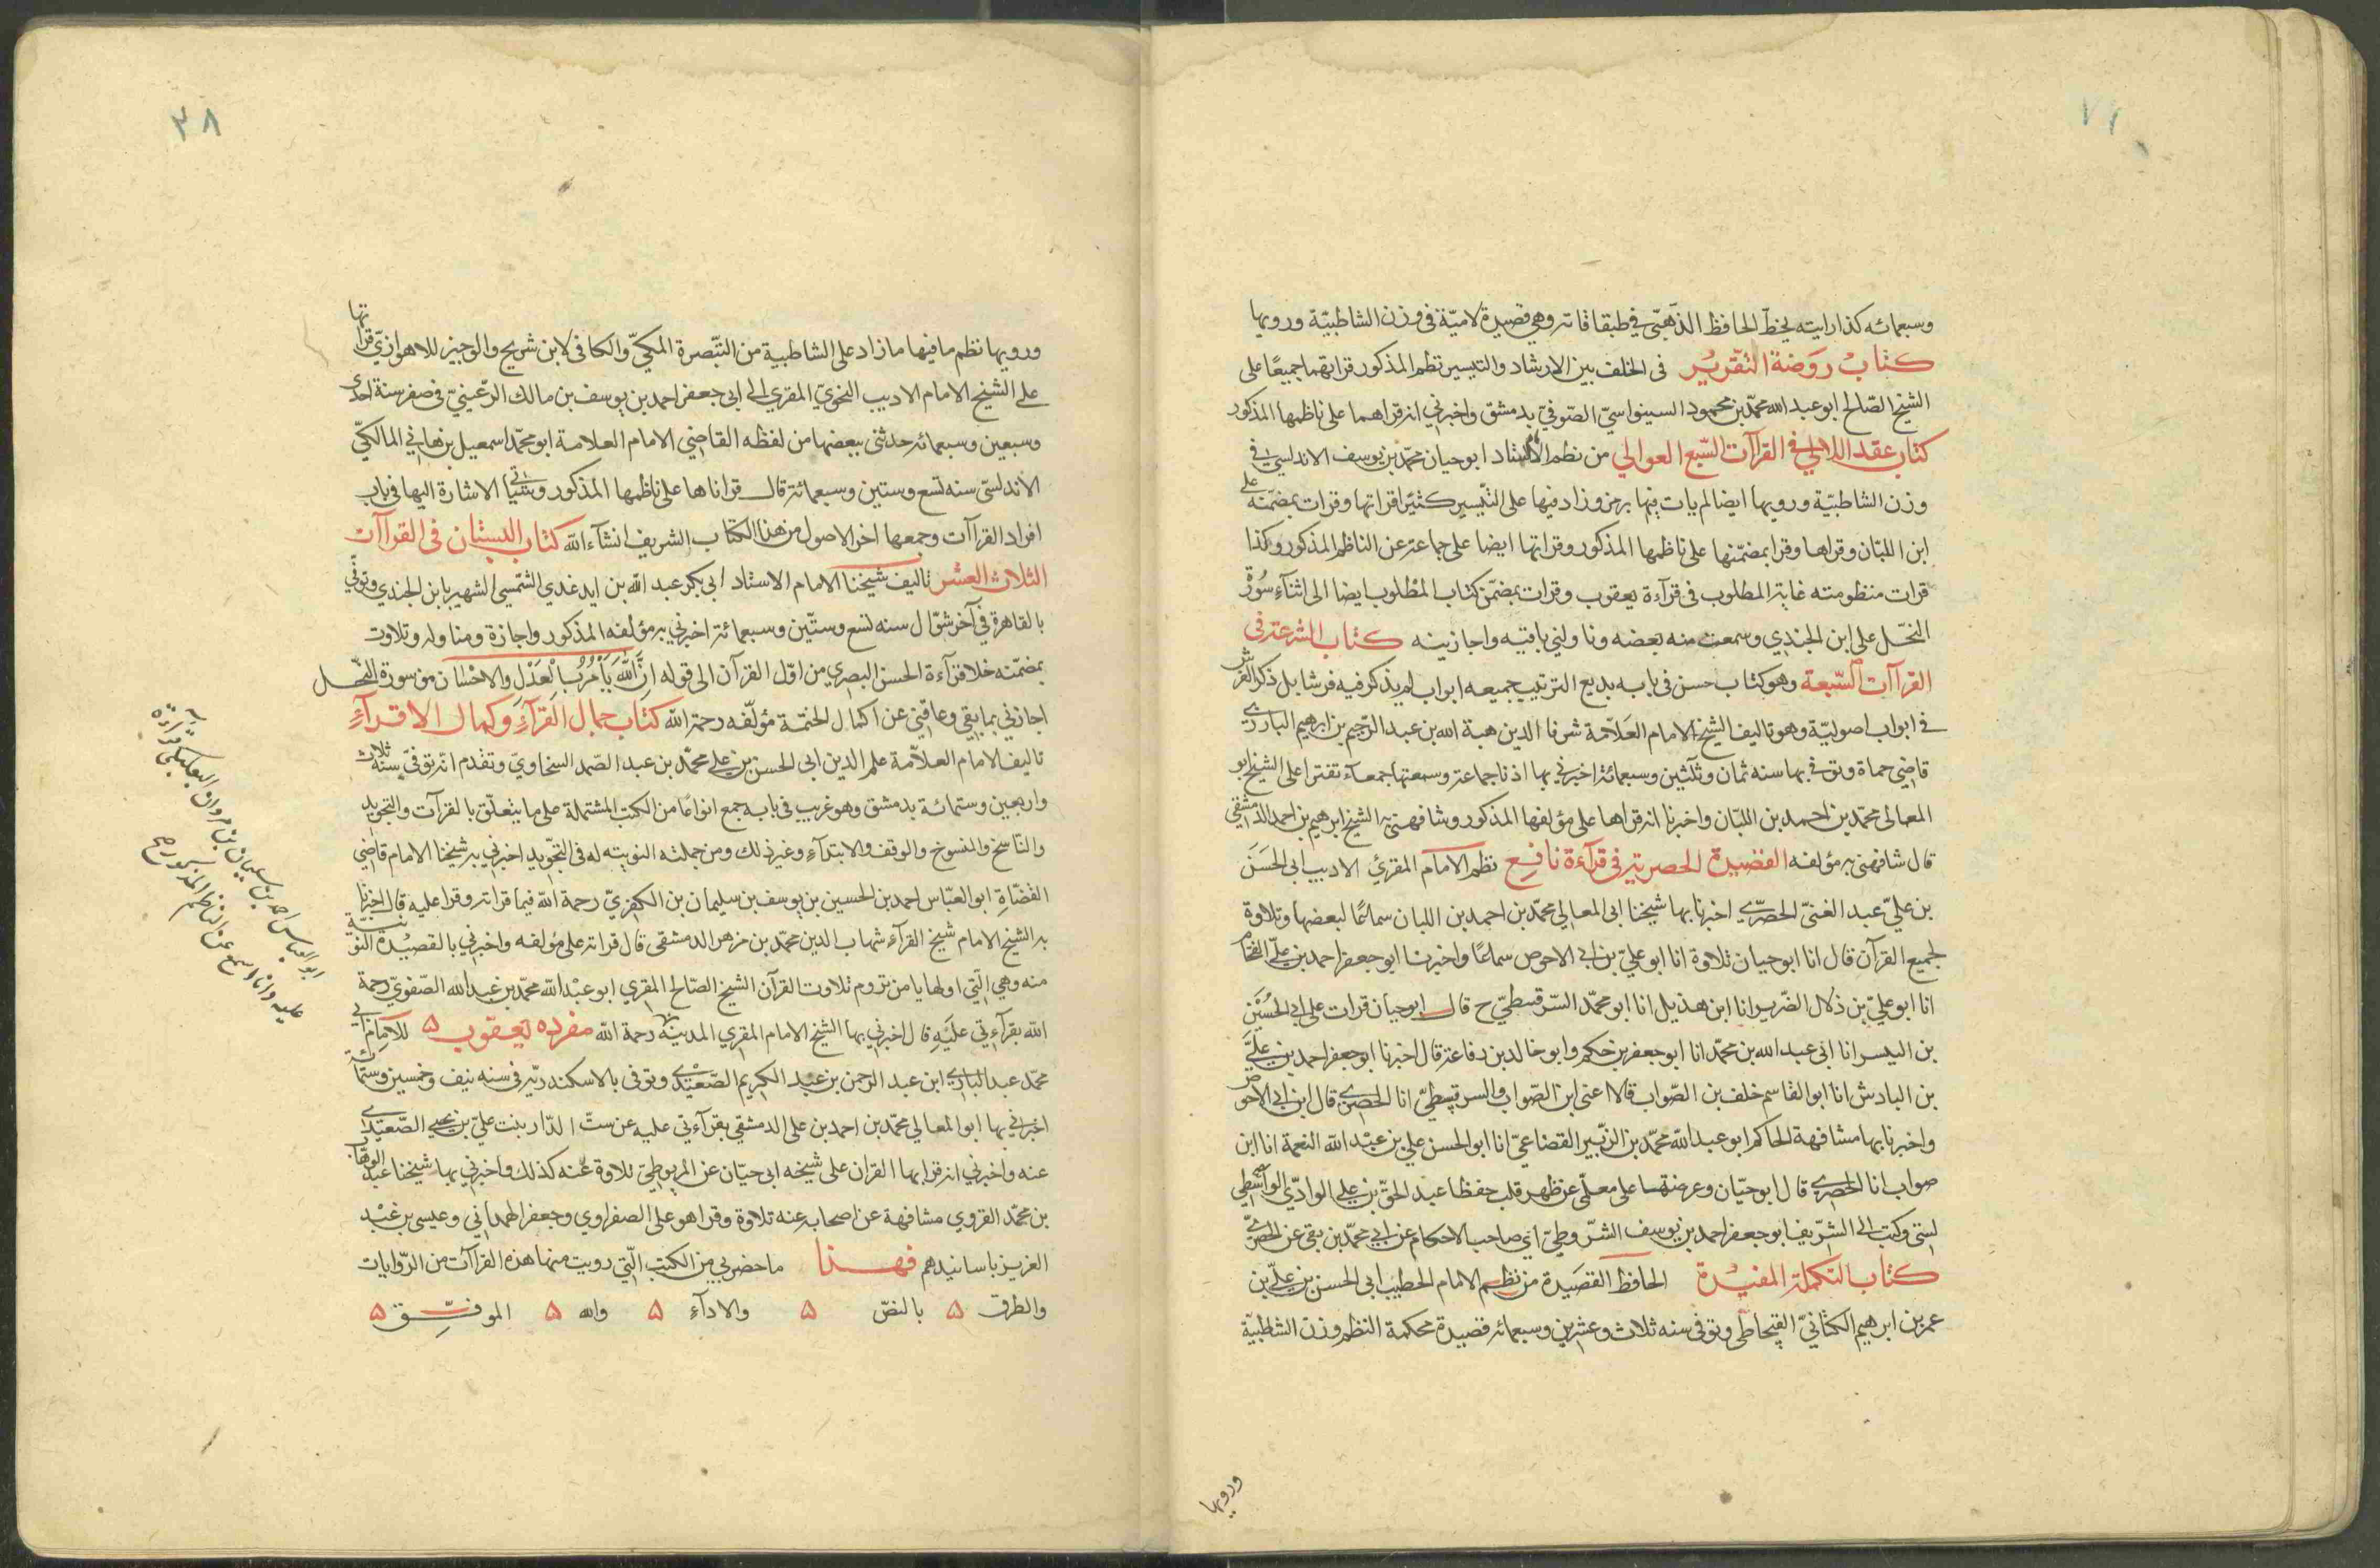 وسبعمائه كذا رايته بخطّ الحافظ الذّهبّي في طبقا قاته وهي قصيدة لاميّة في وزن الشاطبيّة ورويها
كتاب روضة التقرير في الخلف بين الارشاد والتيسير نظم المذكور قراتهما جميعًا على
الشيخ الصّالح ابو عبد الله محمّد بن محمود السينواسيّ الصّوفيّ بدمشق واخبرني انه قراهما على ناظمها المذكور
كتاب عقد اللالي في القراآت السّبع العوالي من نظم الاستاد ابو حيان محمّد بن يوسف الاندلسي في
وزن الشاطبيّة ورويها ايضا لم يات فيها برمز وزاد فيها على التّيسير كثيرًا قراتها وقرات بمضمّنه على
ابن اللبّان وقراها وقرا بمضمّنها على ناظمها المذكور وقراتها ايضا على جماعة عن الناظم المذكور وكذا
قرات منظومته غاية المطلوب في قرآءة يعقوب وقرات بمضمّن كتاب المطلوب ايضا الى اثنآء سُورة
النحّل على ابن الجندي وسمعت منه بعضه وناولني باقيه واجازنيه كتاب الشرعة في
القراآت السّبعة وهو كتاب حسن في بابه بديع الترتيب جميعه ابواب لم يذكر فيه فرشا بل ذكر الفرش
في ابواب اصوليّة وهو تاليف الشيخ الامام العَلاّمة شرف الدين هبة الله بن عبد الرّحيم بن ابرهيم البارزي
قاضي حماة وتوفي بها سنه ثمان وثلثين وسبعمائة اخبرني بها اذنا جماعة وسمعتها جمعآء تقترا على الشيخ ابو
المعالى محمّد بن احمد بن اللبّان واخبرنا انه قراها على مؤلفها المذكور وشافهني به الشيخ ابرهيم بن احمد الدمشقي
قال شافهني به مؤلفه القصيدة الحصرية في قرآءة نافع نظم الامام المقرئ الاديب ابى الحَسَن
بن عليّ عبد الغنيّ الحصرّي اخبرنا بها شيخنا ابى المعالي محمّد بن احمد بن اللبان سماعًا لبعضها وتلاوة
لجميع القرآن قال انا ابو حيان تلاوة انا ابو عليّ بن ابى الاحوص سماعًا واخبرنا ابو جعفر احمد بن عليّ الفحّام
انا ابو عليّ بن ذلال الضّرير انا ابن هذيل انا ابو محمّد السّرقسطيّ ح قال ابو حيان قرات على ابي الحُسَيْن
بن اليسر انا ابى عبد الله بن محمّد انا ابو جعفر بن حكم وابو خالد بن رفاعة قال اخبرنا ابو جعفر احمد بن عليّ
بن الباذش انا ابو القاسم خلف بن الصّواب قالا اعنى ابن الصّواب والسرقسطيّ انا الحصري قال ابن ابي الاحوص
واخبرنا بها مشافهة الحاكم ابو عبد الله محمّد بن الزّبير القضاعيّ انا ابو الحسن علي بن عبْد الله النعمة انا ابن
صواب انا الحصري قال ابو حيّان وعرضتها على معلّمي عن ظهر قلب حفظا عبد الحقّ بن علي الوادّي الواشطي
لستى وكتب الى الشّريف ابو جعفر احمد بن يوسف الشّروطيّ اي صاحب الاحكام عن ابي محمّد بن بقى عن الحصرّيّ
كتاب التكملة المفيدة الحافظ القصَيدة من نظم الامام الخطيب ابى الحسن بن عليّ بن
عمر بن ابرهيم الكنانيّ القيجاطي وتوفي سنه ثلاث وعشرين وسبعمائه قصيدة محكمة النظم وزن الشاطبيّة
ورويها
٣٨
ورويها نظم ما فيها ما زاد على الشاطبية من التّبصرة المكيّ والكافي لابن شريح والوجيز للاهوازيّ قراتها
على الشيخ الامام الاديب النحّويّ المقري الى ابى جعفر احمد بن يوسف بن مالك الرّعينيّ في صفر سنة احدى
وسبعين وسبعمائه حدثنى ببعضها من لفظه القاضي الامام العلامة ابو محمّد اسمعيل بن هاني المالكيّ
الاندلسيّ سنه تسع وستين وسبعمائة قال قراناها على ناظمها المذكور وستاتي الاشارة اليها في باب
افراد القراآت وجمعها اخر الاصول من هذا الكتاب الشريف انشآء الله كتاب البستان في القراآت
الثلاث العشر تاليف شيخنا الامام الاستاد ابي بكر عبد الله بن ايدغدي الشمّسي الشهير بابن الجندي وتوفّي
بالقاهرة في آخر شوّال سنه تسع وستّين وسبعمائة اخبرني به مؤلفه المذكور واجازة ومناوله وتلاوت
بمضمّنه خلا قرآءة الحسن البصري من اوّل القرآن الى قوله انّ الله يأمُرُ بالْعَدْلِ والاحْسان من سورة النّحل
اجازني بما بقي وعاقني عن اكمال الختمة مؤلّفه رحمة الله كتاب جمال القرآء وكمال الاقرآء
تاليف الامام العلاّمة علم الدين ابى الحسن بن علي محمّد بن عبد الصّمد السخاويّ وتقدم انّه توفيّ سنه ثلاث
واربعين وستمائة بدمشق وهو غريب في بابه جمع انواعًا من الكتب المشتملة على ما يتعلّق بالقرآت والتجويد
والنّاسخ والمنسوخ والوقف والابتدآء وغير ذلك ومن جملته النونيته له في التجّويد اخبرني به شيخنا الامام قاضي
القضّاة ابو العبّاس احمد بن الحسين بن يوسف بن سليمان بن الكفريّ رحمة الله فيما قراته وقرا عليه قال اخبرنا
به الشيخ الامام شيخ القرآء شهاب الدين محمّد بن مزهر الدمشقى قال قراته على مؤلفه واخبرني بالقصيْدة النونية
منه وهي الّتي اولها يا من تروم تلاوت القرآن الشيخ الصّالح المقري ابو عبْد الله محمّد بن عبد الله الصّفويّ رحمة
الله بقرآءتي عليَه قال اخبرني بها الشيخ الامام المقري المدينة رحمة الله مفرده يعقوب ۵ للامام ابي
محمّد عبد الباري ابن عبد الرحمن بن عبْد الكريم الصّعيْدي وتوفي بالاسكندريّه في سنه نيف وخمسين وستّمائة
اخبرني بها ابو المعالي محمّد بن احمد بن على الدمشقي بقرآءتي عليه عن ستّ الدّار بنت عليّ بن يحيى الصّعيّدي
عنه واخبرني انه قرا بها القران على شيخه ابى حيّان عن المريوطيّ تلاوة عنه كذلك واخبرني بها شيخنا عبد الوهّاب
بن محمّد القروي مشافهة عن اصحابه عنه تلاوة وقرا هو على الصفراوي وجعفر الهمداني وعيسى بن عبْد
العزيز باسانيدهم فهذا ما حضر بي من الكتب الّتي رويت منها هذه القراآت من الرّوايات
والطرق ۵ بالنصّ ۵ والادآء ۵ والله ۵ الموفّق ۵
ابو العباس احمد بن سليمان بن مروان البعلبكي قراءة
عليه وانا اسمع عن الناظم المذكور ح